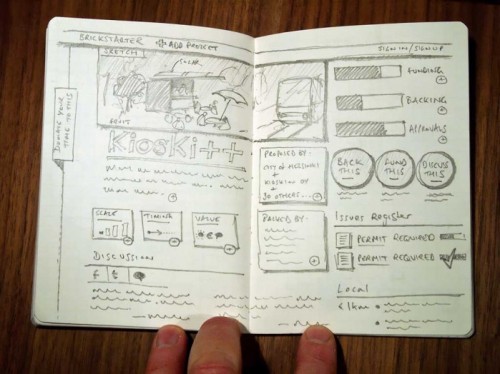 BRICKSTARTER ADD PROJECT
SIGN IN / SIGN UP
SKETCH
SOLAR
FRUIT
DONATE YOUR TIME TO THIS
Kioski++
SCALE
TIMING
VALUE
DISCUSSION
f t
PROPOSED BY:
CITY OF HELSINKI
+
KIOSKION BY
+
30 OTHERS...
BACKED BY:
FUNDING
BACKING
APPROVALS
BACK THIS
FUND THIS
DISCUSS THIS
Issues Register
PERMIT REQUIRED
PERMIT REQUIRED
Local
< 1km